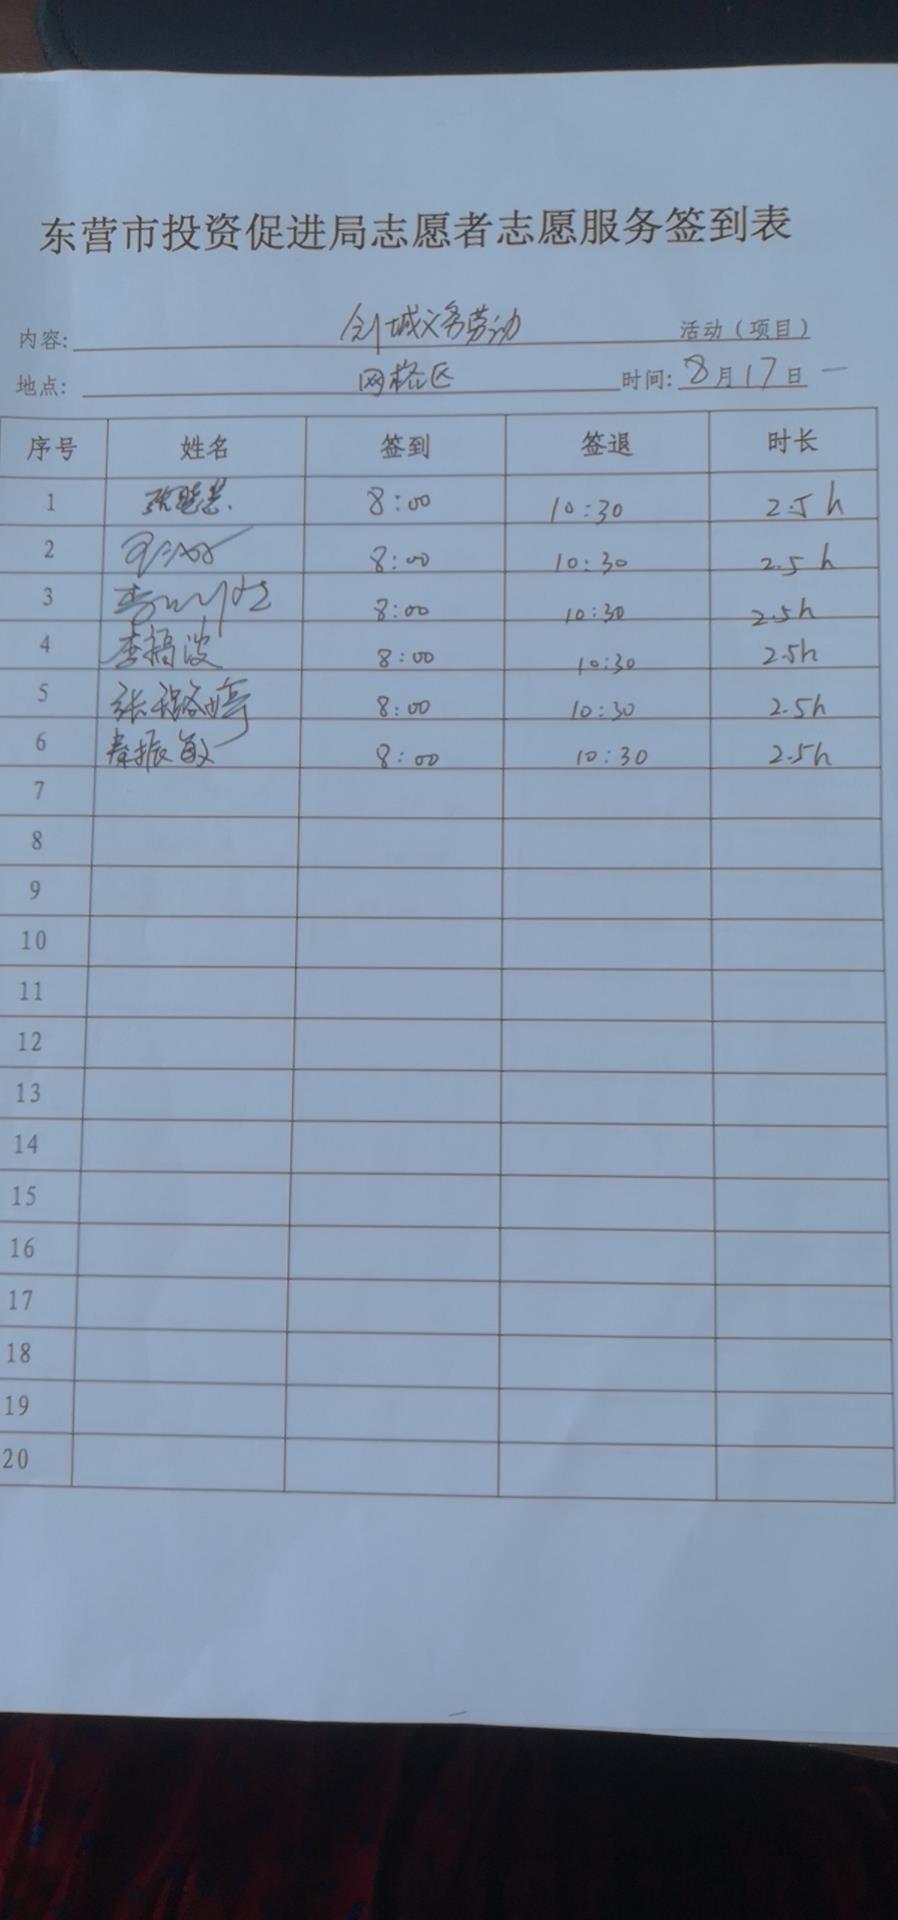 东营市投资促进局志愿者志愿服务签到表
内容: 创城义务劳动 活动（项目）
地点: 网格区 时间: 8月17日
序号 姓名 签到 签退 时长
1 8:00 10:30 2.5h
2 8:00 10:30 2.5h
3 8:00 10:30 2.5h
4 8:00 10:30 2.5h
5 8:00 10:30 2.5h
6 秦振敏 8:00 10:30 2.5h
7
8
9
10
11
12
13
14
15
16
17
18
19
20